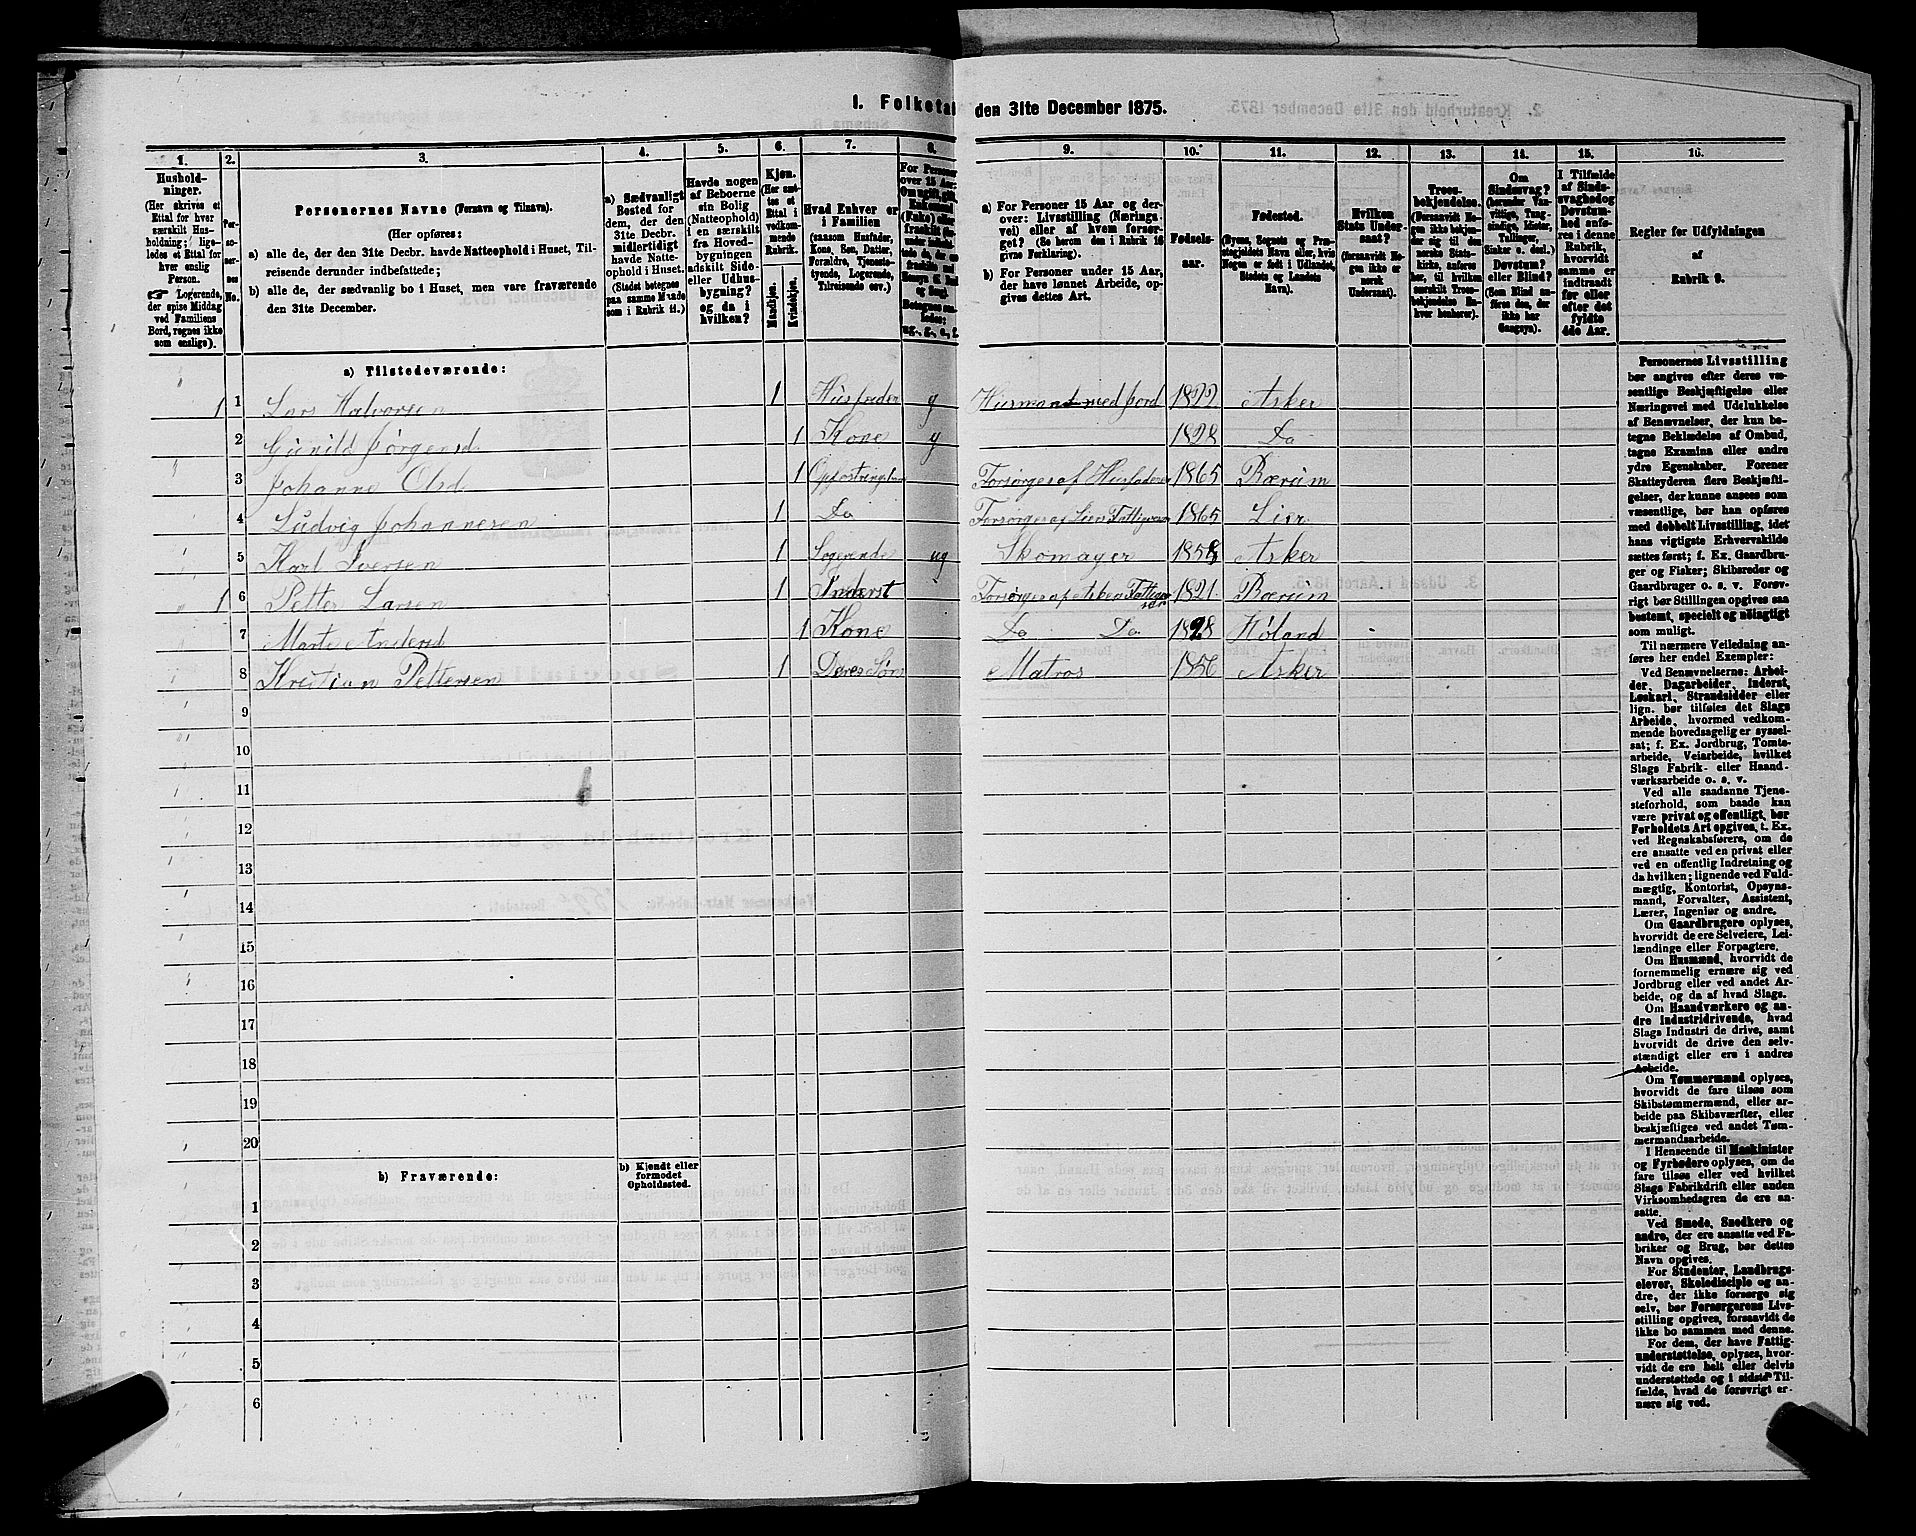 1. Folketal den 31te December 1875.
1. 2. 3. 4. 5. 6. 7. 8. 9. 10. 11. 12. 13. 14. 15. 16.
Hushold-
ninger.
(Her skrives et
Ettal for hver
særskilt Hus-
holdning; lige-
ledes et Ettal for
hver enslig
Person.
☞ Logerende,
der spise Middag
ved Familiens
Bord, regnes ikke
som enslige).
Per-
so-
ner-
nes
No.
Personernes Navne (Fornavn og Tilnavn).
(Her opføres:
a) alle de, der den 31te Decbr. havde Natteophold i Huset, Til-
reisende derunder indbefattede;
b) alle de, der sædvanlig bo i Huset, men vare fraværende
den 31te December.
a) Sædvanligt
Bosted for
dem, der den
31te Decbr.
midlertidigt
havde Natte-
ophold i Huset.
(Stedet betegnes
paa samme Maade
som i Rubrik 11.)
Havde nogen
af Beboerne
sin Bolig
(Natteophold)
i en særskilt
fra Hoved-
bygningen
adskilt Side-
eller Udhus-
bygning?
og da i
hvilken?
Kjøn.
(Her sæt-
tes et
Ettal i
vedkom-
mende
Rubrik.
Mandkjøn.
Kvindekjøn.
Hvad Enhver er
i Familien
(saasom Husfader,
Kone, Søn, Datter,
Forældre, Tjeneste-
tyende, Logerende,
Tilreisende osv.
For Personer
over 15 Aar:
a) For Personer 15 Aar og der-
over: Livsstilling (Nærings-
vei) eller af hvem forsør-
get? (Se herom den i Rubrik 16
givne Forklaring).
b) For Personer under 15 Aar,
der have lønnet Arbeide, op-
gives dettes Art.
Fødsels-
aar.
Fødested.
(Byens, Sognets og Præ-
stegjeldets Navn eller, hvis
Nogen er født i Udlandet,
Stedets og Landets
Navn).
Hvilken
Stats Under-
saat?
(forsaavidt No-
gen ikke er
norsk
Undersaat).
Troes-
bekjendelse.
(Forsaavidt No-
gen ikke bekjen-
der sig til den
norske Stats-
kirke, anføres
her, til hvilken
særskilt Troes-
bekjendelse En-
hver henhører).
Om
Sindssvag?
(herunder Van-
vittige, Tung-
sindige, Idioter,
Tullinger,
Sinker o. desl.).
Døvstum?
eller Blind?
(Som Blind an-
føres den, der
ikke har
Gangsyn).
I Tilfælde
af Sinds-
svaghed og
Døvstum-
hed anfø-
res i denne
Rubrik,
hvorvidt
samme er
indtraadt
før eller
efter det
fyldte
4de Aar.
Regler for Udfyldningen
af
Rubrik 9.
a) Tilstedeværende:
1 1 Lars Halvorsen 1 Husfader g Husmand med Jord 1822 Asker
2 Gunild Jørgensd 1 Kone g 1828 Do
3 Johanne Olsd 1 Forsørges af Husfaderen 1865 Bærum
4 Ludvig Johannesen 1 Do Forsørges af Lier Fattigvæsen 1865 Lier
5 Karl Iversen 1 Logerende ug Skomager 1858 Asker
1 6 Petter Larsen 1 Inderst 1821 Bærum
7 Marte Andersd 1 Kone Do Do 1828 Høland
8 Kristian Pettersen 1 Deres Søn Matros 1856 Asker
9
10
11
12
13
14
15
16
17
18
19
20
b) Fraværende:
b) Kjendt eller
formodet
Opholdssted.
1
2
3
4
5
6
Personernes Livsstilling
bør angives efter deres væ-
sentlige Beskjæftigelse eller
Næringsvei med Udelukkelse
af Benævnelser, der kun be-
tegne Beklædelse af Ombud,
tagne Examina eller andre
ydre Egenskaber. Forener
Skatteyderen flere Beskjæfti-
gelser, der kunne ansees som
væsentlige, bør han opføres
med dobbelt Livsstilling, idet
hans vigtigste Erhvervskilde
sættes først; f. Ex. Gaardbru-
ger og Fisker; Skibsreder og
Gaardbruger o. s. v. Forøv-
rigt bør Stillingen opgives saa
bestemt, specielt og nøiagtigt
som muligt.
Til nærmere Veiledning an-
føres her endel Exempler:
Ved Benævnelserne: Arbei-
der, Dagarbeider, Inderst,
Løskarl, Strandsidder eller
lign. bør tilføies det Slags
Arbeide, hvormed vedkom-
mende hovedsagelig er syssel-
sat; f. Ex. Jordbrug, Tomte-
arbeide, Veiarbeide, hvilket
Slags Fabrik- eller Haand-
værksarbeide o. s. v.
Ved alle saadanne Tjene-
steforhold, som baade kan
være privat og offentligt, bør
Forholdets Art opgives, t. Ex.
ved Regnskabsførere, om de
ere ansatte ved en privat eller
ved en offentlig Indretning og
da hvilken; lignende ved Fuld-
mægtig, Kontorist, Opsyns-
mand, Forvalter, Assistent,
Lærer, Ingeniør og andre.
Om Gaardbrugere oplyses,
hvorvidt de ere Selveiere, Lei-
lændinge eller Forpagtere.
Om Husmænd, hvorvidt de
fornemmelig ernære sig ved
Jordbrug eller ved andet Ar-
beide, og da af hvad Slags.
Om Haandværkere og an-
dre Industridrivende, hvad
Slags Industri de drive, samt
hvorvidt de drive den selv-
stændigt eller ere i andres
Arbeide.
Om Tømmermænd oplyses,
hvorvidt de fare tilsøs som
Skibstømmermænd, eller ar-
beide paa Skibsværfter, eller
beskjæftiges ved andet Tøm-
mermandsarbeide.
I Henseende til Maskinister
og Fyrbødere oplyses, om de
fare tilsøs eller ved hvilket
Slags Fabrikdrift eller anden
Virksomhedsgren de ere an-
satte.
Ved Smede, Snedkere og
andre, der ere ansatte ved Fa-
briker og Brug, bør dettes
Navn opgives.
For Studenter, Landbrugs-
elever, Skoledisciple og an-
dre, der ikke forsørge sig
selv, bør Forsørgerens Livs-
stilling opgives, forsaavidt de
ikke bo sammen med denne.
For dem, der have Fattig-
understøttelse, oplyses, hvor-
vidt de ere helt eller delvis
understøttede og i sidste Til-
fælde, hvad de forøvrigt er-
nære sig ved.